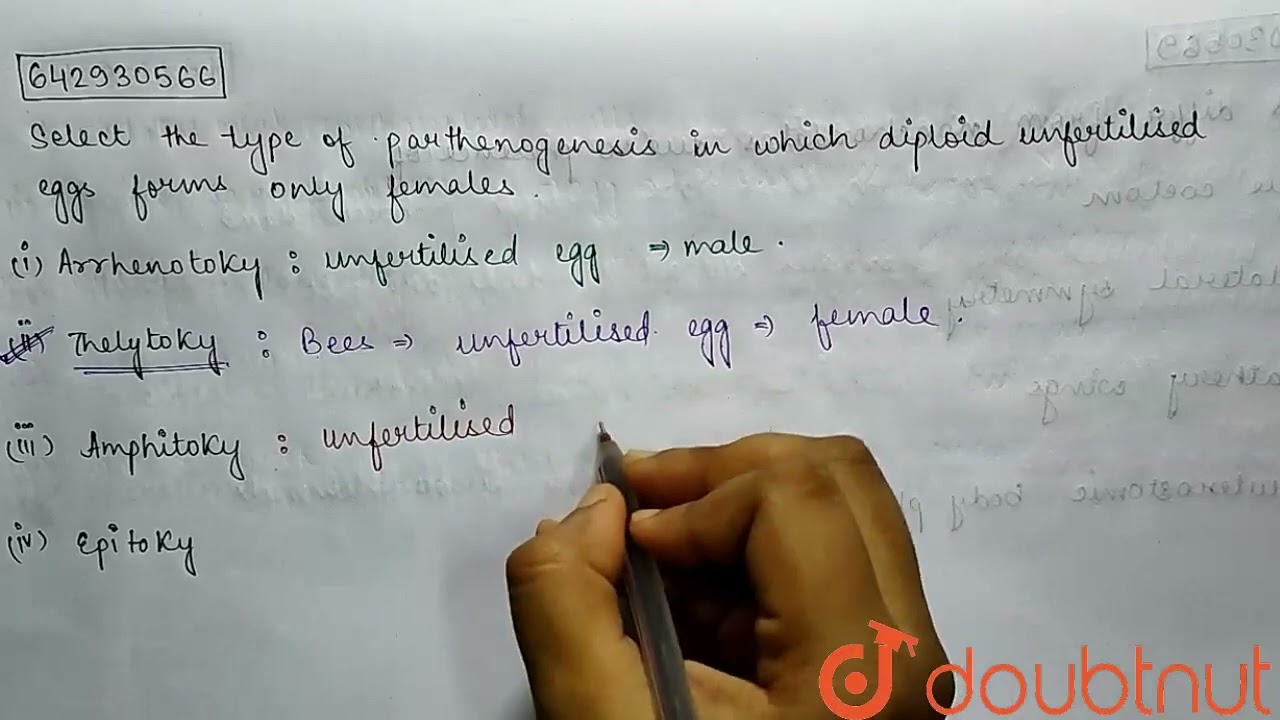 642930566
Select the type of parthenogenesis in which diploid unfertilised
eggs forms only females.
(i) Arrhenotoky : unfertilised egg ⇒ male.
(ii) Thelytoky : Bees ⇒ unfertilised egg ⇒ female.
(iii) Amphitoky : unfertilised
(iv) Epitoky
doubtnut